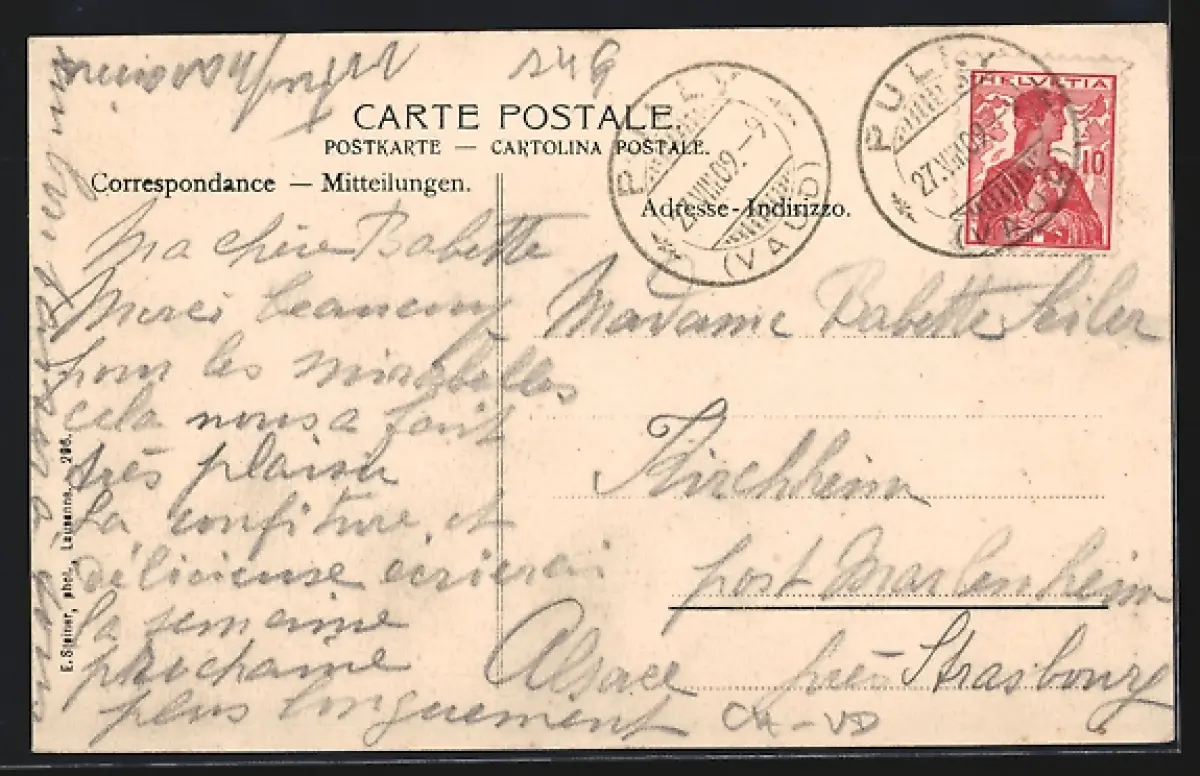 CARTE POSTALE.
POSTKARTE — CARTOLINA POSTALE.
Correspondance — Mitteilungen.
Adresse - Indirizzo.
PULLY
(VAUD)
28.VIII.09.–9
PULLY
(VAUD)
27.VIII.09.
HELVETIA
10
Ma chère Babette
Merci beaucoup
pour les mirabelles
cela nous a fait
très plaisir
la confiture et
délicieuse ecrierai
la semaine
prochaine
plus longuement
Madame Babette Seiler
Kirchheim
post Marlenheim
Alsace près Strasbourg
CH-VD
E. Steiner, phot., Lausanne. 296.